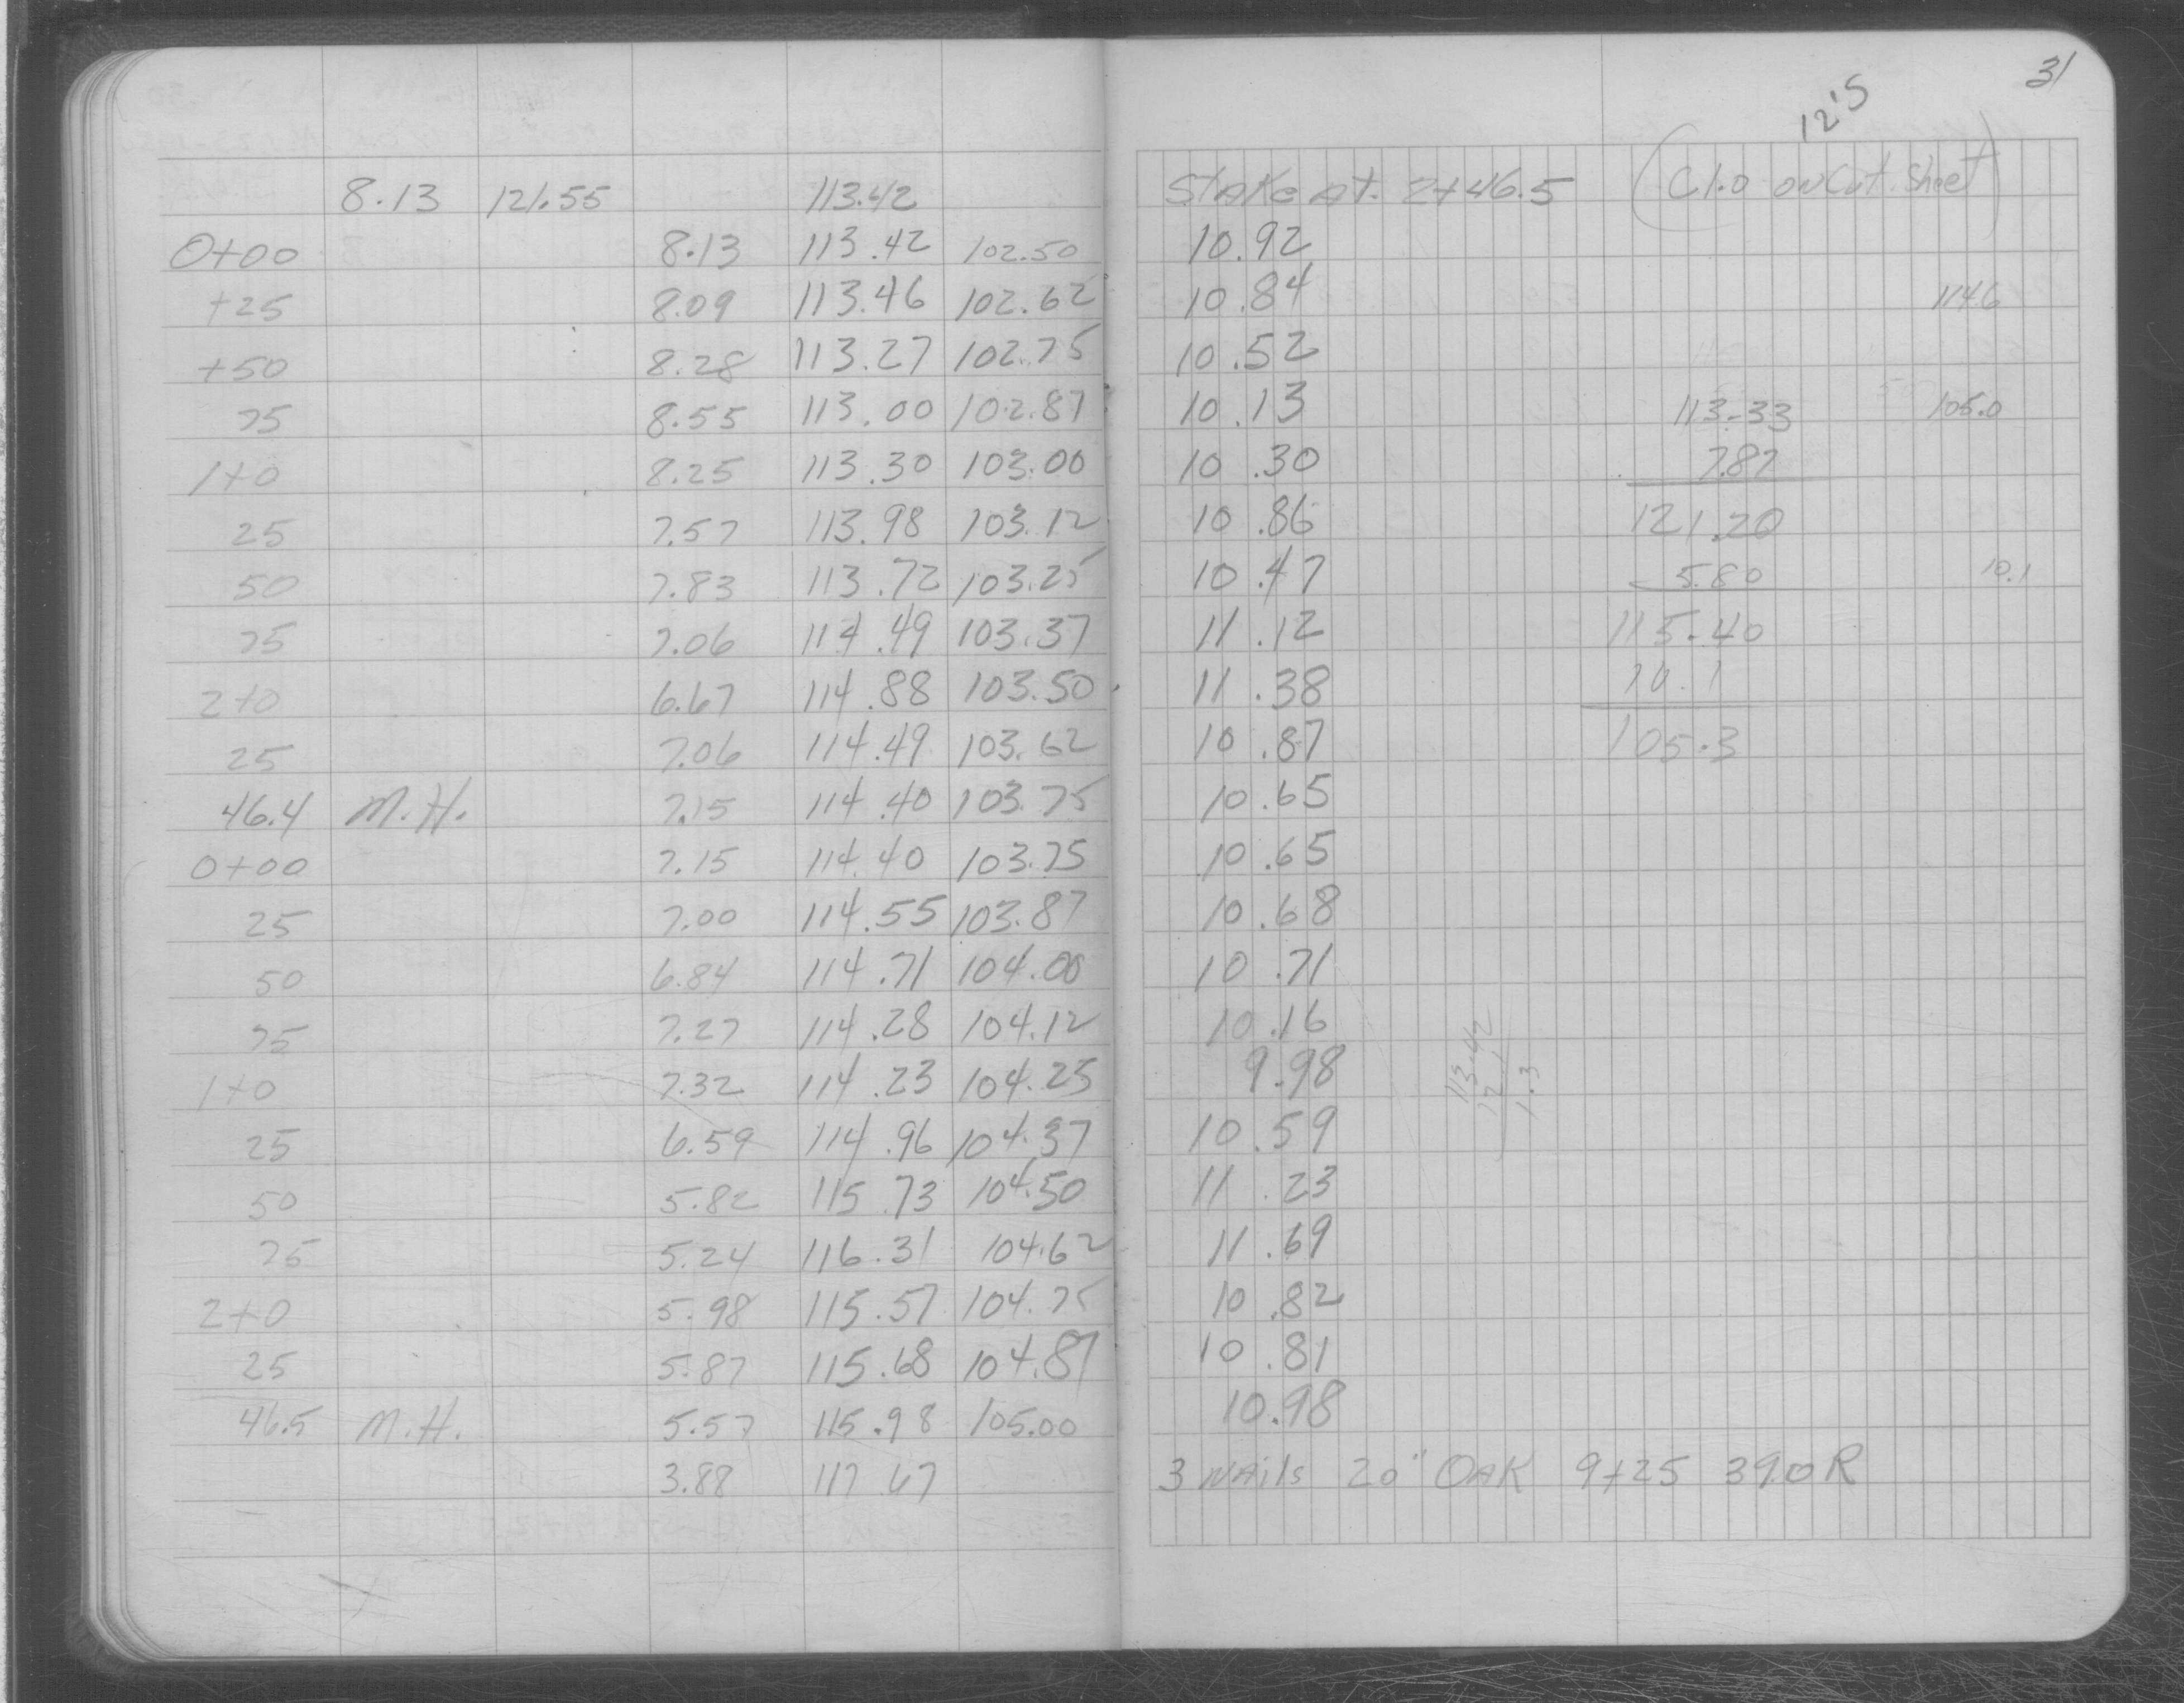 31
12'S
8.13 121.55 113.42 Stake At. 2+46.5 (C1.0 on Cut Sheet)
0+00 8.13 113.42 102.50 10.92
+25 8.09 113.46 102.62 10.84 114.6
+50 8.28 113.27 102.75 10.52
75 8.55 113.00 102.87 10.13 113.33 105.0
1+0 8.25 113.30 103.00 10.30 7.87
25 7.57 113.98 103.12 10.86 121.20
50 7.83 113.72 103.25 10.47 5.80 10.1
75 7.06 114.49 103.37 11.12 115.40
2+0 6.67 114.88 103.50 11.38 10.1
25 7.06 114.49 103.62 10.87 105.3
46.4 M.H. 7.15 114.40 103.75 10.65
0+00 7.15 114.40 103.75 10.65
25 7.00 114.55 103.87 10.68
50 6.84 114.71 104.00 10.71
75 7.27 114.28 104.12 10.16
1+0 7.32 114.23 104.25 9.98
25 6.59 114.96 104.37 10.59
50 5.82 115.73 104.50 11.23
75 5.24 116.31 104.62 11.69
2+0 5.98 115.57 104.75 10.82
25 5.87 115.68 104.87 10.81
46.5 M.H. 5.57 115.98 105.00 10.98
3.88 117.67 3 Nails 20" OAK 9+25 390R
113.42
12.1
1.3